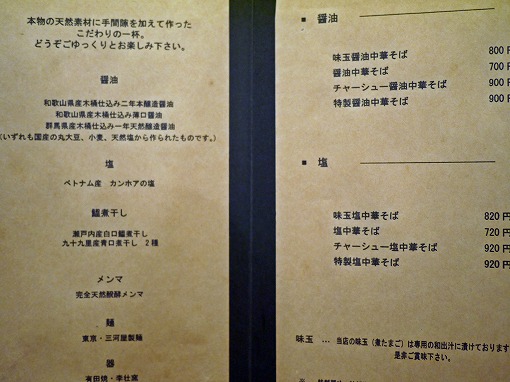 本物の天然素材に手間隙を加えて作った
こだわりの一杯。
どうぞごゆっくりとお楽しみ下さい。
醤油
和歌山県産木桶仕込み二年本醸造醤油
和歌山県産木桶仕込み薄口醤油
群馬県産木桶仕込み一年天然醸造醤油
(いずれも国産の丸大豆、小麦、天然塩から作られたものです。)
塩
ベトナム産 カンホアの塩
鰮煮干し
瀬戸内産白口鰮煮干し
九十九里産青口煮干し 2種
メンマ
完全天然醗酵メンマ
麺
東京・三河屋製麺
器
有田焼・李荘窯
■ 醤油
味玉醤油中華そば 800円
醤油中華そば 700
チャーシュー醤油中華そば 900
特製醤油中華そば 900
■ 塩
味玉塩中華そば 820円
塩中華そば 720円
チャーシュー塩中華そば 920円
特製塩中華そば 920円
味玉 … 当店の味玉(煮たまご)は専用の和出汁に漬けております
是非ご賞味下さい。